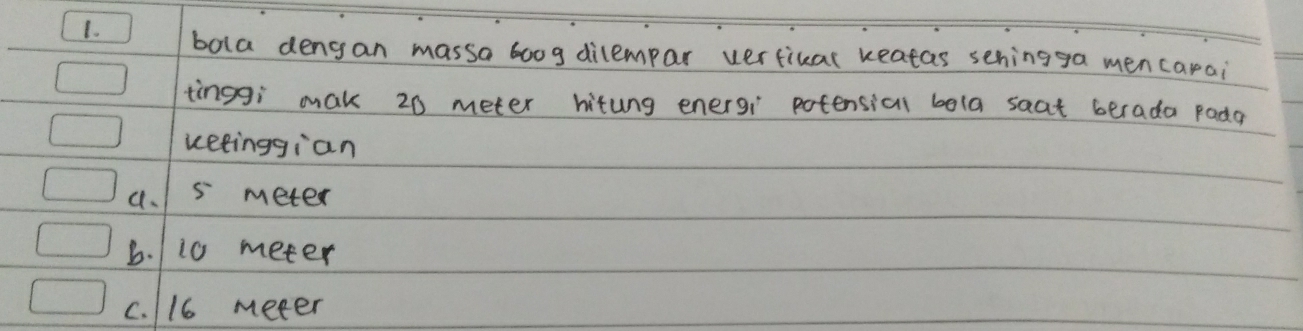 1. bola dengan massa 600g dilempar vertikal keatas sehingga mencapai
tinggi mak 20 meter hitung energi potensial bola saat berada pada
ketinggian
a. 5 meter
b. 10 meter
c. 16 meter